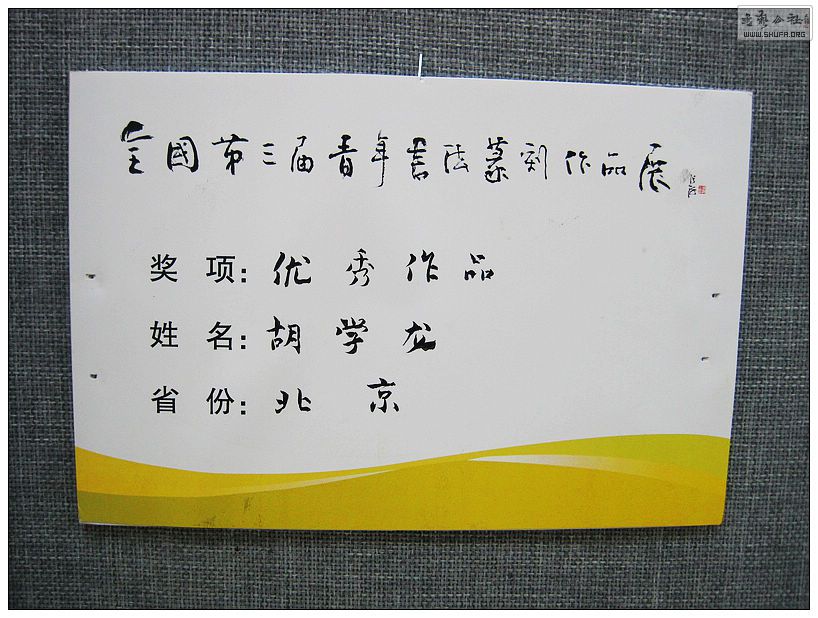 全國第三届青年書法篆刻作品展
奖 项: 优秀作品
姓 名: 胡学龙
省 份: 北京
WWW.SHUFA.ORG